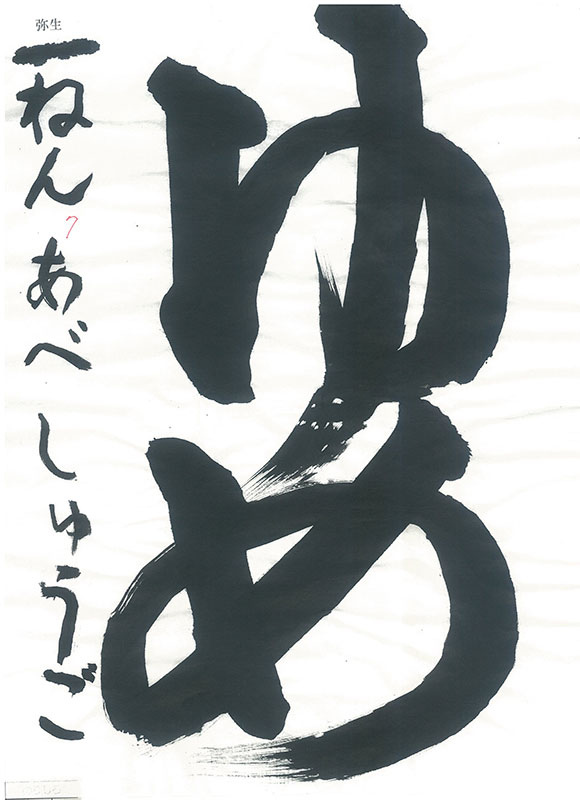 ゆめ
弥生
一ねん あべ しゅうご